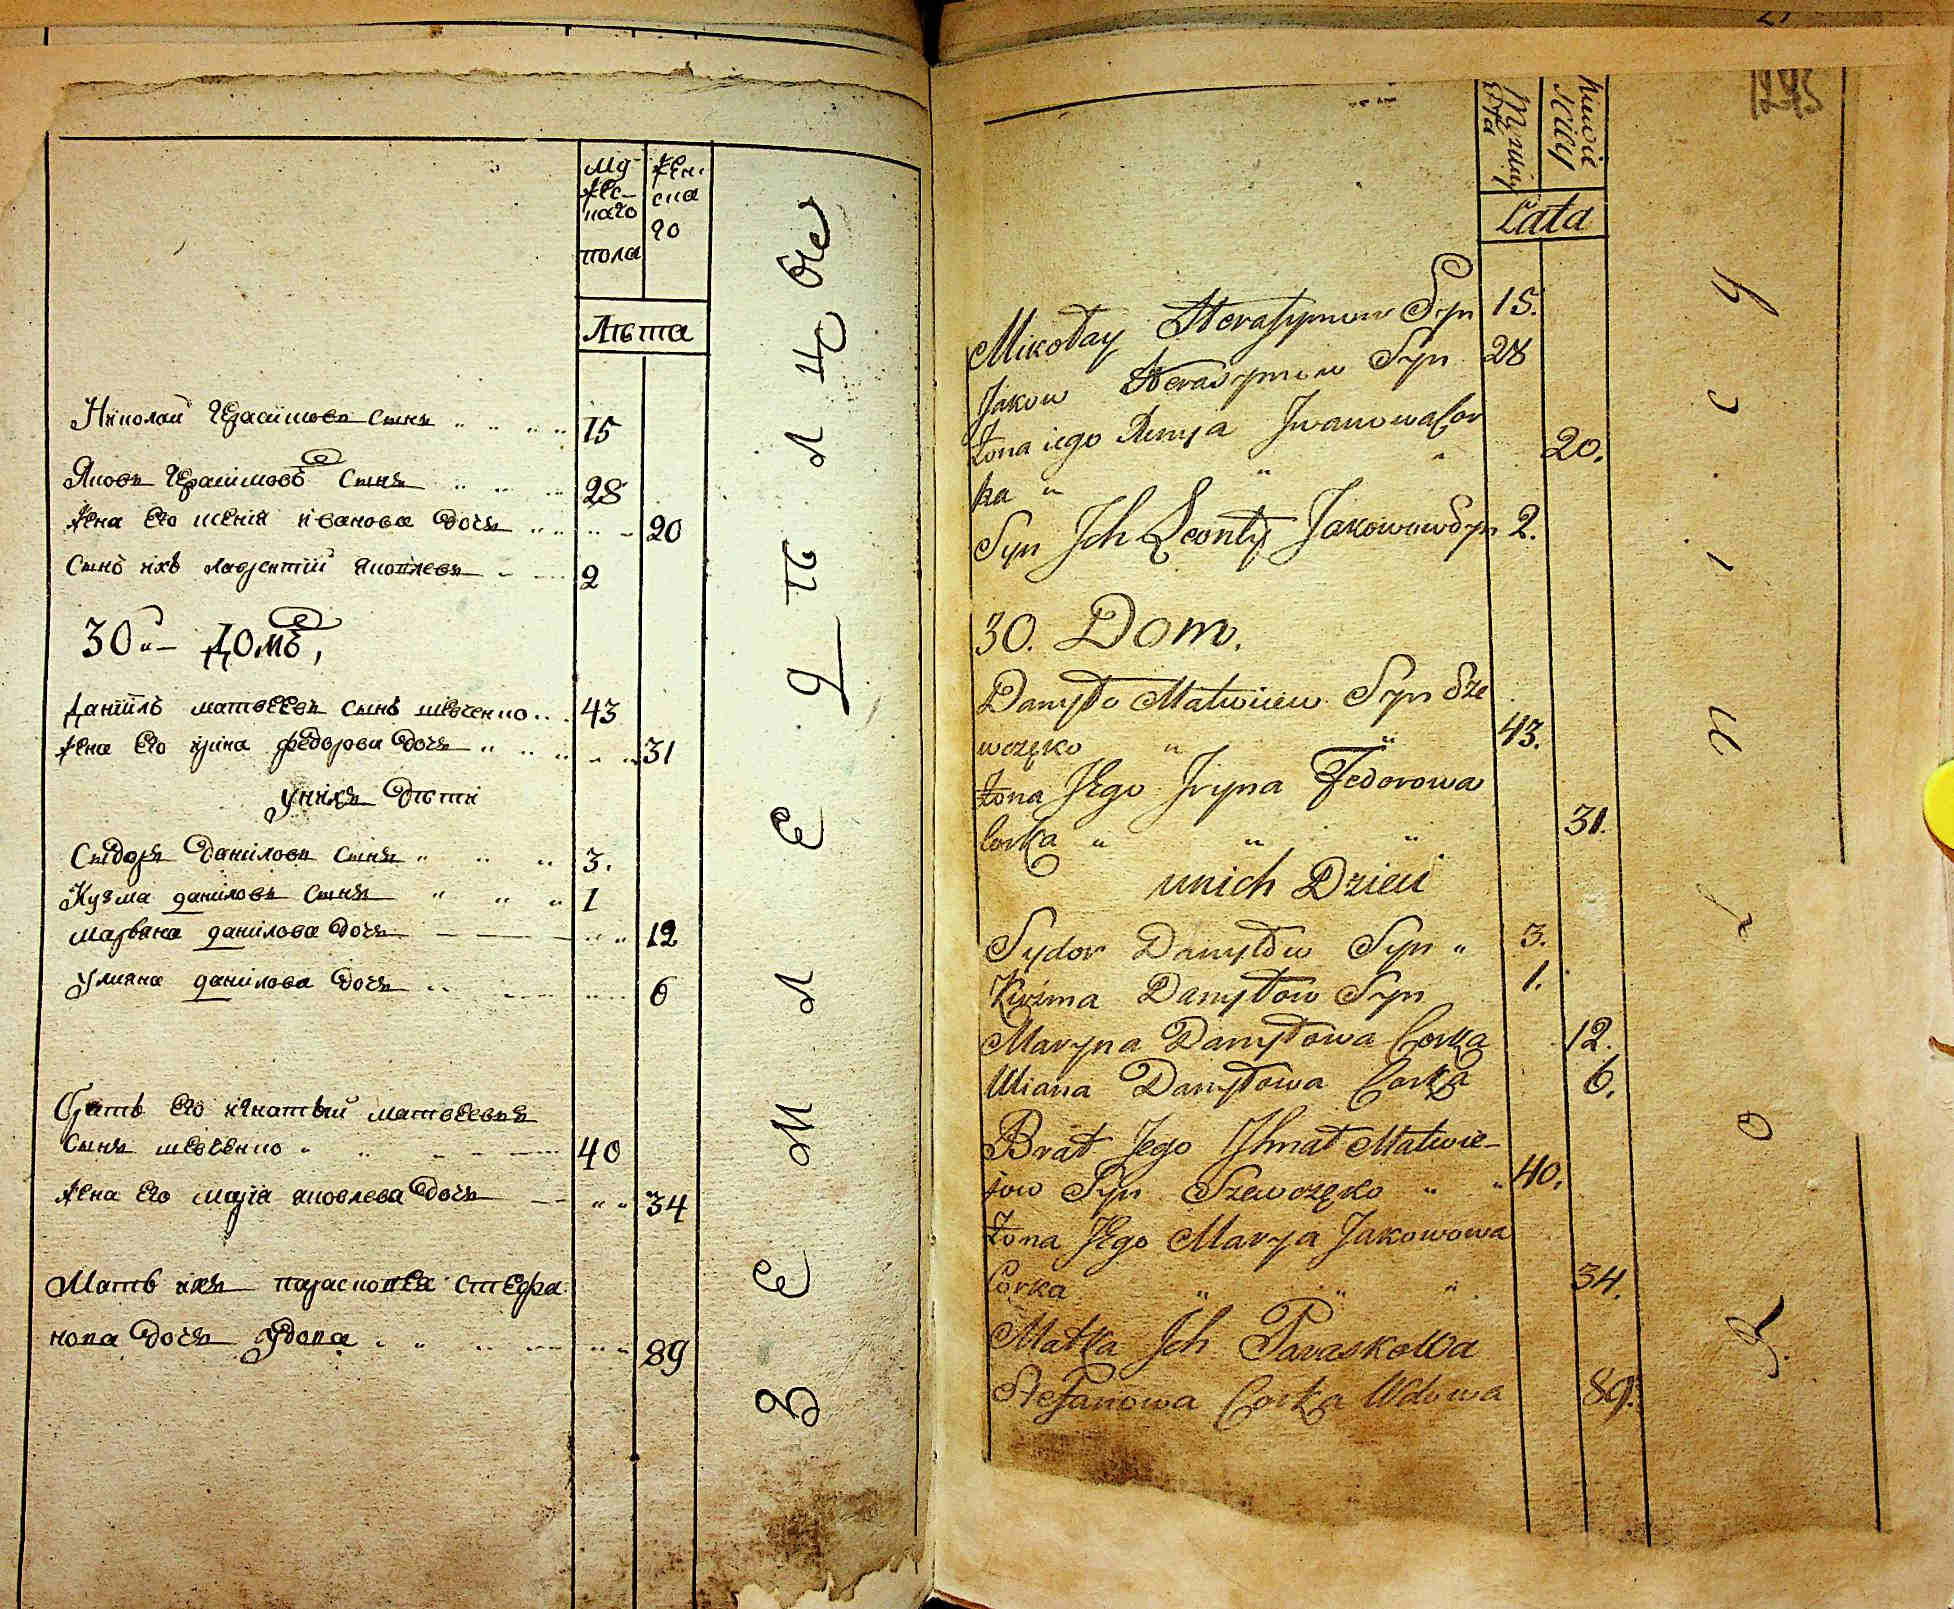 му
жес-
каго
пола
жен.
ска
го
Лѣта
Николай Герасимовъ сынъ 15
Яковъ Герасимовъ Сынъ 28
жена его ксенія иванова дочъ 20
Сынъ ихъ лаврентій яковлевъ 2
30й домъ,
Даніилъ матвеевъ сынъ шевченко 43
жена его ирина федорова дочъ 31
у нихъ дѣти
Сыдоръ даниловъ сынъ 3.
Кузма даниловъ сынъ 1
Марвана данилова дочъ 12
Улияна данилова дочъ 6
Братъ его игнатый матвеевъ
Сынъ шевченко 40
жена его марія яковлева дочъ 34
Мать ихъ парасковея стефа
нова дочъ удова 89
земледѣлцы
1245
Lata
Mikołay Herasymow Syn 15.
Jakow Herasymow Syn 28
Żona iego Iwanowa Cor
ka 20.
Syn Ich Leonty Jakowow Syn 2.
30. Dom.
Danyło Matwiiew Syn Sze
wczęko 43.
Żona Jego Iryna Fedorowa
Corka 31.
unich Dzieci
Sydor Danyłow Syn 3.
Kuzma Danyłow Syn 1.
Maryna Danyłowa Corka 12.
Uliana Danyłowa Corka 6.
Brat Jego Ihnat Matwie-
jow Syn Szewczęko 40.
Żona Jego Marya Jakowowa
Corka 34.
Matka Ich Paraskowia
Stefanowa Corka Wdowa 89.